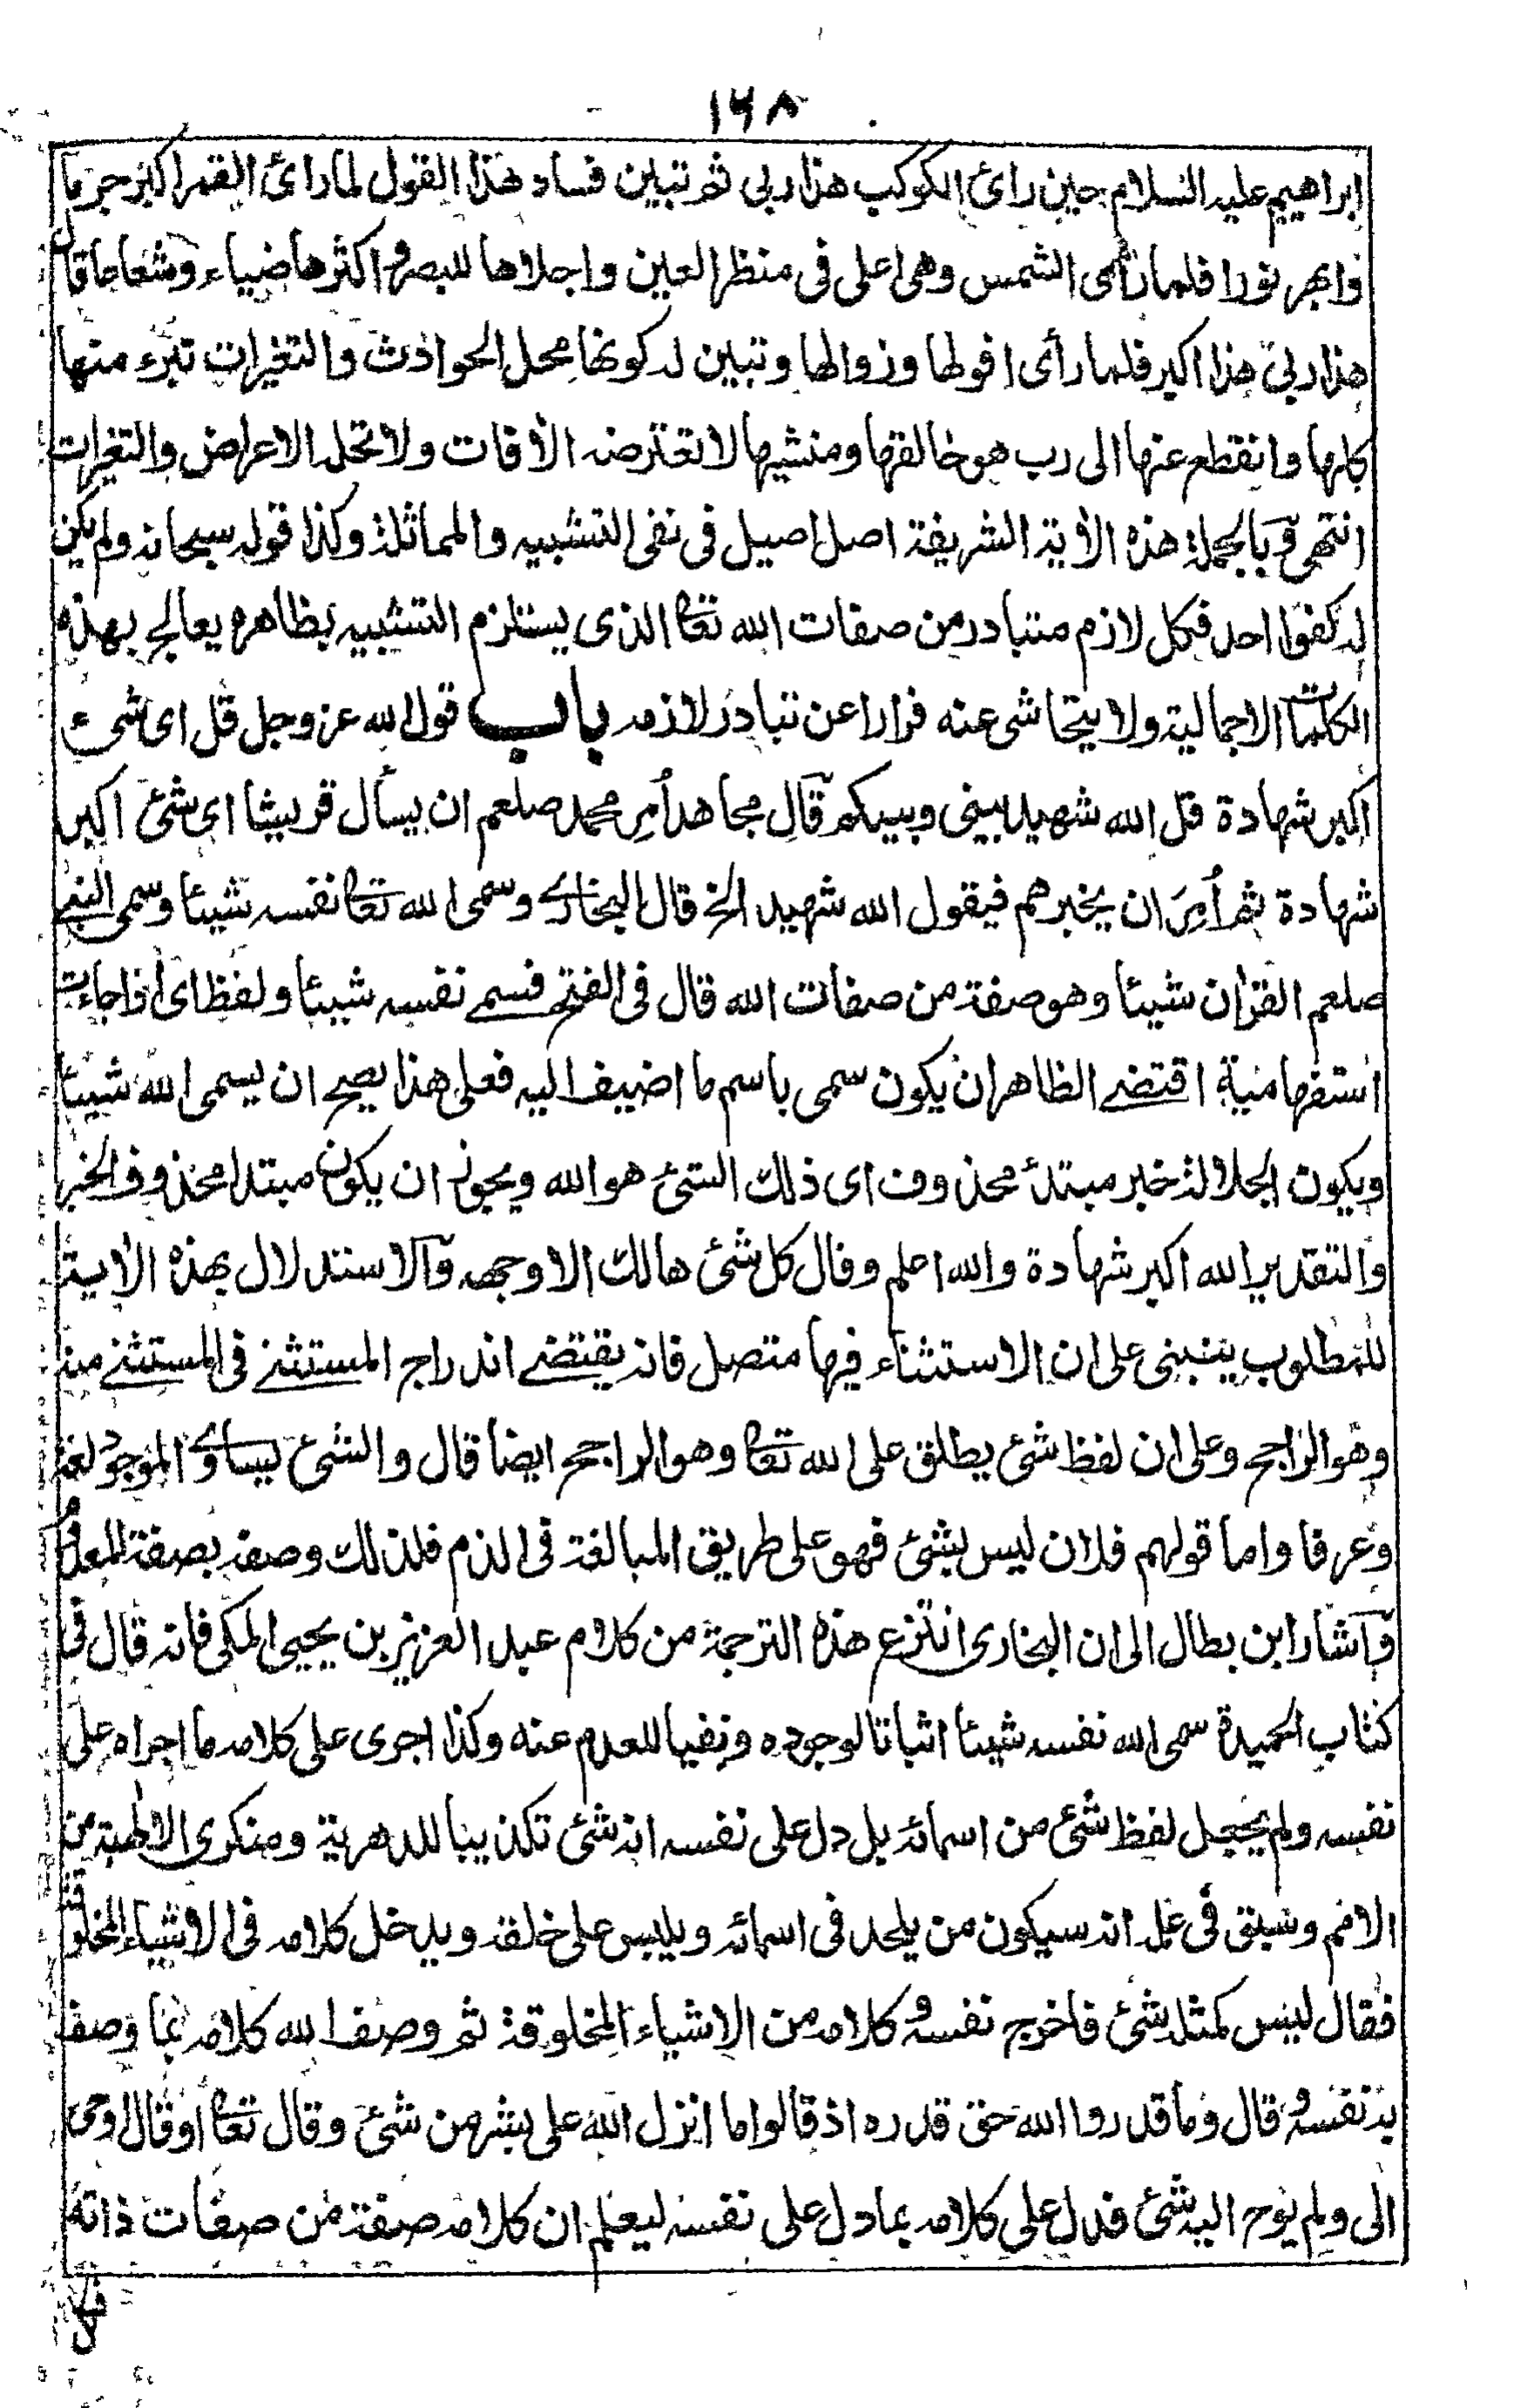 ١٦٨
ابراهيم عليه السلام حين رائ الكوكب هذا ربى ثم تبين فساد هذا القول لما رائ القمر اكبر جرما
وابهر نورا فلما رأى الشمس وهى اعلى فى منظر العين واجلاها للبصر واكثرها ضياء وشعاعا قال
هذا ربى هذا اكبر فلما رأى افولها وزوالها وتبين له كونها محل الحوادث والتغيرات تبرء منها
كلها وانقطع عنها الى رب هو خالقها ومنشيها لا تعترضه الآفات ولا تحله الاعراض والتغيرات
انتهى وبالجملة هذه الآية الشريفة اصل اصيل فى نفى التشبيه والمماثلة وكذا قوله سبحانه ولم يكن
له كفوا احد فكل لازم متبادر من صفات الله تعا الذى يستلزم التشبيه بظاهره يعالج بهذه
الكلمات الاجمالية ولا يتحاشى عنه فرارا عن تبادر لازمه باب قول الله عز وجل قل اى شىء
اكبر شهادة قل الله شهيد بينى وبينكم قال مجاهد أمر محمد صلعم ان يسأل قريشا اى شئ اكبر
شهادة ثم أمر ان يخبرهم فيقول الله شهيد الخ قال البخارى وسمى الله تعا نفسه شيئا وسمى النبى
صلعم القرآن شيئا وهو صفة من صفات الله قال فى الفتح فسمى نفسه شيئا ولفظ اى اذا جاءت
استفهامية اقتضى الظاهر ان يكون سمى باسم ما اضيف اليه فعلى هذا يصح ان يسمى الله شيئا
ويكون الجلالة خبر مبتدئ محذوف اى ذلك الشئ هو الله ويجوز ان يكون مبتدا محذوف الخبر
والتقدير الله اكبر شهادة والله اعلم وقال كل شئ هالك الا وجهه والاستدلال بهذه الآية
للمطلوب ينبنى على ان الاستثناء فيها متصل فانه يقتضى اندراج المستثنى فى المستثنى منه
وهو الراجح وعلى ان لفظ شئ يطلق على الله تعا وهو الراجح ايضا قال والشئ يساوى الموجود لغة
وعرفا واما قولهم فلان ليس بشئ فهو على طريق المبالغة فى الذم فلذلك وصفه بصفة المعدوم
واشار ابن بطال الى ان البخارى انتزع هذه الترجمة من كلام عبد العزيز بن يحيى المكى فانه قال فى
كتاب الحيدة سمى الله نفسه شيئا اثباتا لوجوده ونفيا للعدم عنه وكذا اجرى على كلامه ما اجراه على
نفسه ولم يجعل لفظ شئ من اسمائه بل دل على نفسه انه شئ تكذيبا للدهرية ومنكرى الالهية من
الامم وسبق فى علمه انه سيكون من يلحد فى اسمائه ويلبس على خلقه ويدخل كلامه فى الاشياء المخلوقة
فقال ليس كمثله شئ فاخرج نفسه وكلامه من الاشياء المخلوقة ثم وصف الله كلامه بما وصف
به نفسه وقال وما قدروا الله حق قدره اذ قالوا ما انزل الله على بشر من شئ وقال تعا او قال اوحى
الى ولم يوح اليه شئ فدل على كلامه بما دل على نفسه ليعلم ان كلامه صفة من صفات ذاته